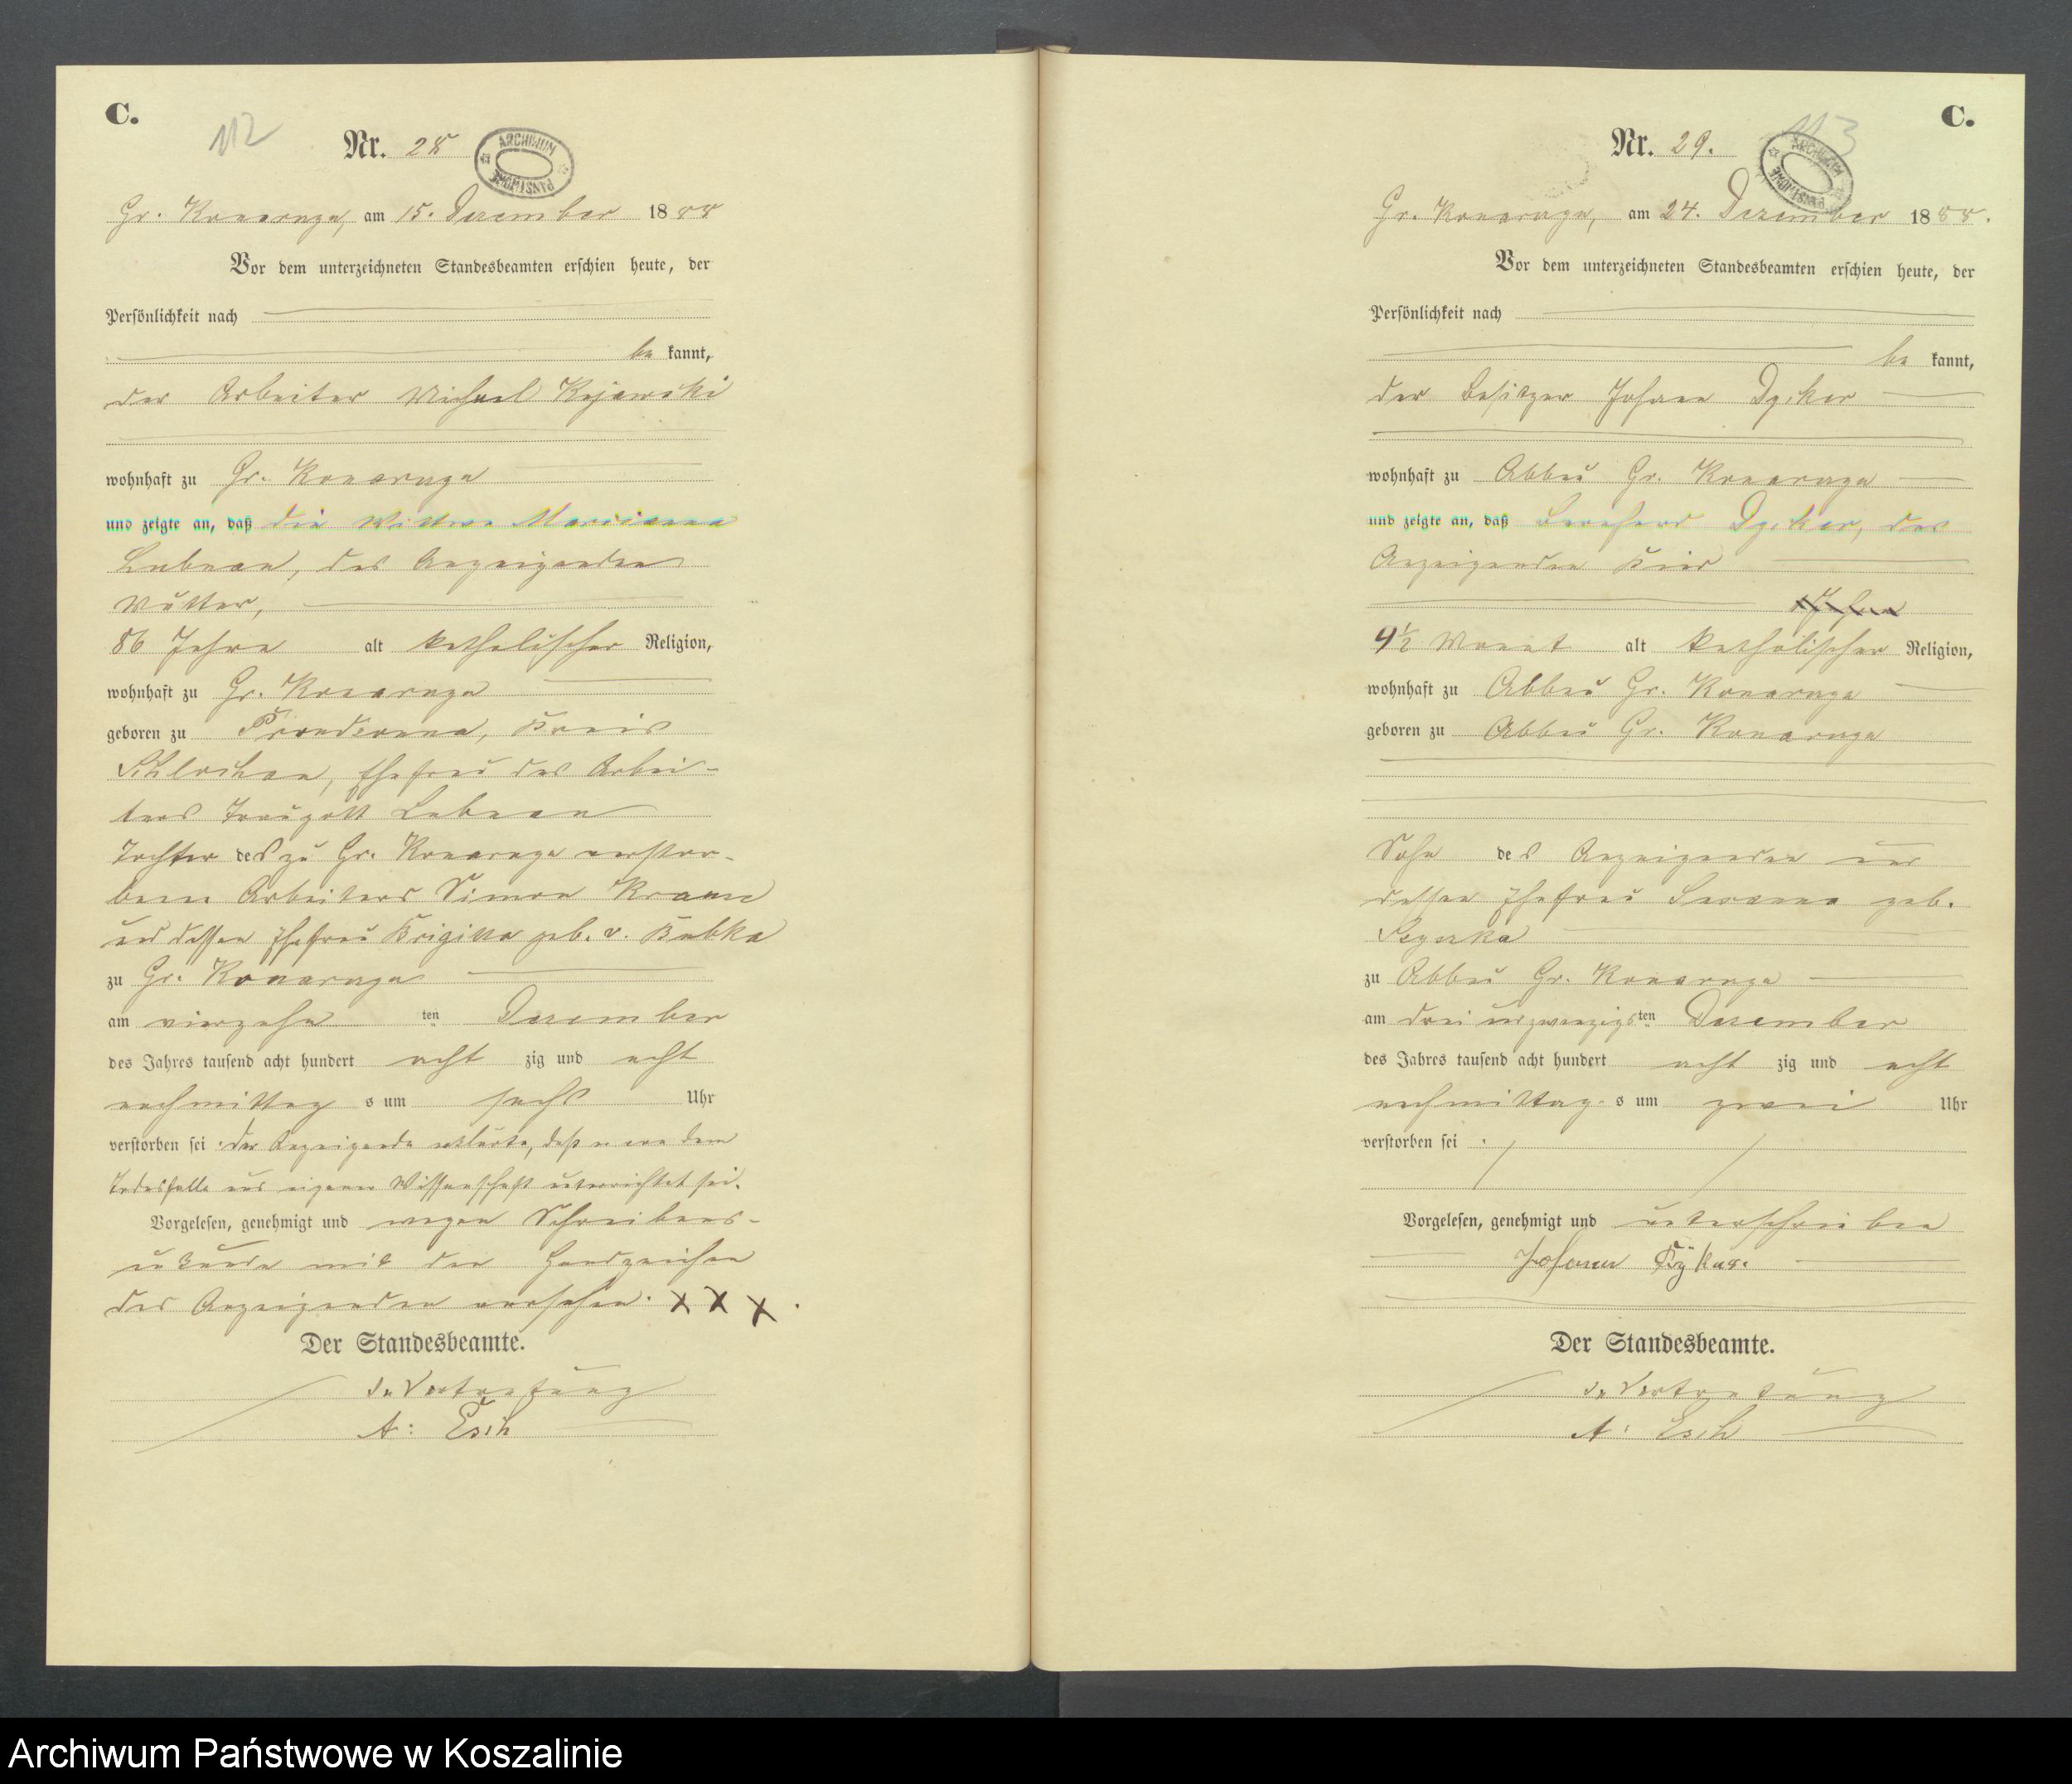 C.
112
Nr. 28
ARCHIWUM PAŃSTWOWE
Gr. Konarzyn, am 15. Dezember 1888
Vor dem unterzeichneten Standesbeamten erschien heute, der
Persönlichkeit nach
be kannt,
der Arbeiter Michael Kujawski
wohnhaft zu Gr. Konarzyn
und zeigte an, daß die Wittwe Marianna
Lubnau, des Anzeigenden
Mutter,
86 Jahre alt katholischer Religion,
wohnhaft zu Gr. Konarzyn
geboren zu Prondzonna, Kreis
Schlochau, Ehefrau des Arbei-
ters Traugott Lubnau
Tochter des zu Gr. Konarzyn verstor-
benen Arbeiters Simon
und dessen Ehefrau Brigitta geb. v. Bubka
zu Gr. Konarzyn
am vierzehn ten Dezember
des Jahres tausend acht hundert acht zig und acht
nachmittag s um sechs Uhr
verstorben sei. der Anzeigende erklärte, daß er von dem
Todesfalle aus eigener Wissenschaft unterrichtet sei.
Vorgelesen, genehmigt und wegen Schreibens-
unkunde mit den Handzeichen
des Anzeigenden versehen. X X X.
Der Standesbeamte.
In Vertretung
A: Esch
C.
113
Nr. 29.
ARCHIWUM PAŃSTWOWE
Gr. Konarzyn, am 24. Dezember 1888.
Vor dem unterzeichneten Standesbeamten erschien heute, der
Persönlichkeit nach
be kannt,
der Besitzer Johann
wohnhaft zu Abbau Gr. Konarzyn
und zeigte an, daß Bernhard des
Anzeigenden Kind
Jahre
4½ Monat alt katholischer Religion,
wohnhaft zu Abbau Gr. Konarzyn
geboren zu Abbau Gr. Konarzyn
Sohn des Anzeigenden und
dessen Ehefrau Susanna geb.
zu Abbau Gr. Konarzyn
am drei und zwanzigsten Dezember
des Jahres tausend acht hundert acht zig und acht
nachmittag s um zwei Uhr
verstorben sei.
Vorgelesen, genehmigt und unterschrieben
Johann
Der Standesbeamte.
In Vertretung
A: Esch
Archiwum Państwowe w Koszalinie